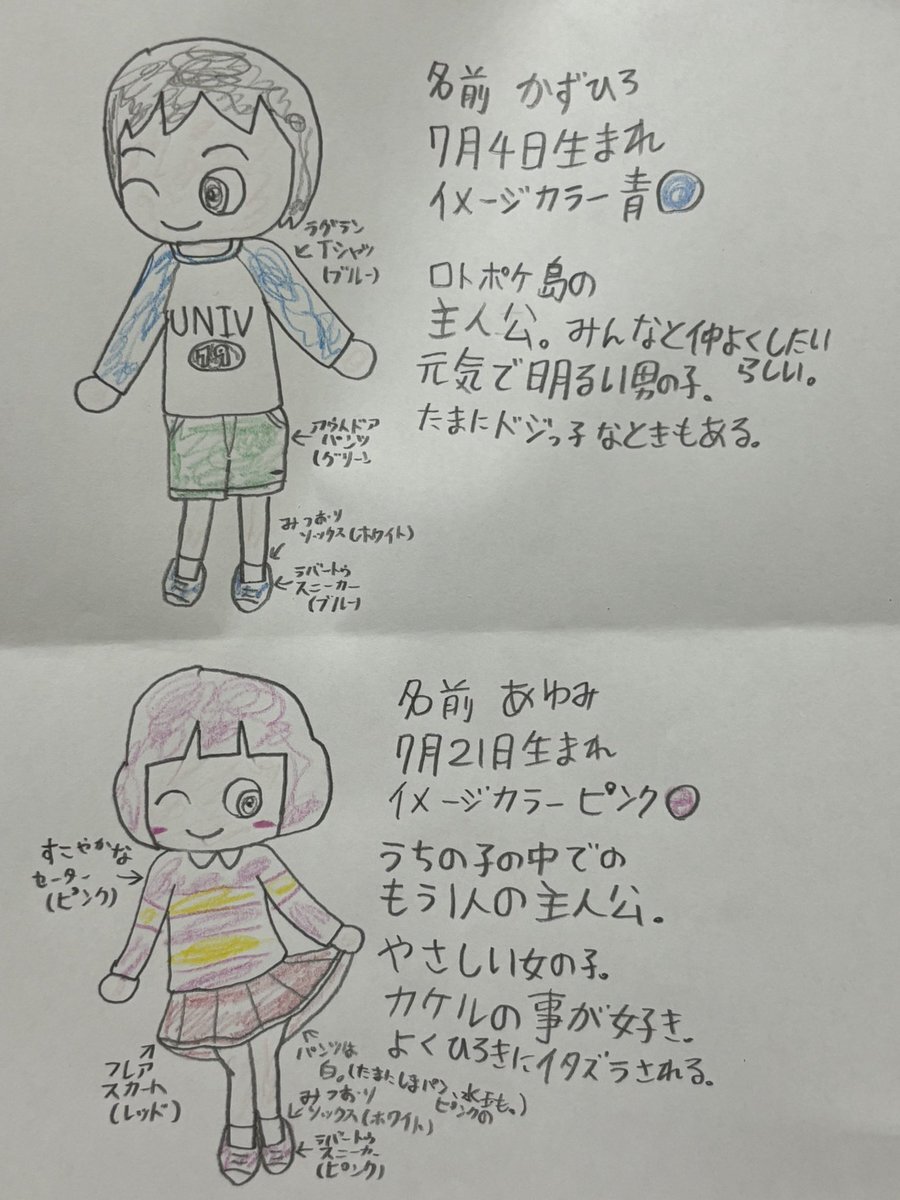 名前 かずひろ
7月4日生まれ
イメージカラー 青
ラグラン
Tシャツ
(ブルー)
UNIV
ロトポケ島の
主人公。みんなと仲よくしたい
らしい。
元気で明るい男の子。
たまにドジっ子なときもある。
アウトドア
パンツ
(グリーン
みつおり
ソックス(ホワイト)
ラバートゥ
スニーカー
(ブルー)
名前 あゆみ
7月21日生まれ
イメージカラー ピンク
すこやかな
セーター
(ピンク)
うちの子の中での
もう1人の主人公。
やさしい女の子。
カケルの事が好き。
よくひろきにイタズラされる。
フレア
スカート
(レッド)
パンツは
白。(たまにしまパン、水玉も。)
ピンクの
みつおり
ソックス(ホワイト)
ラバートゥ
スニーカー
(ピンク)